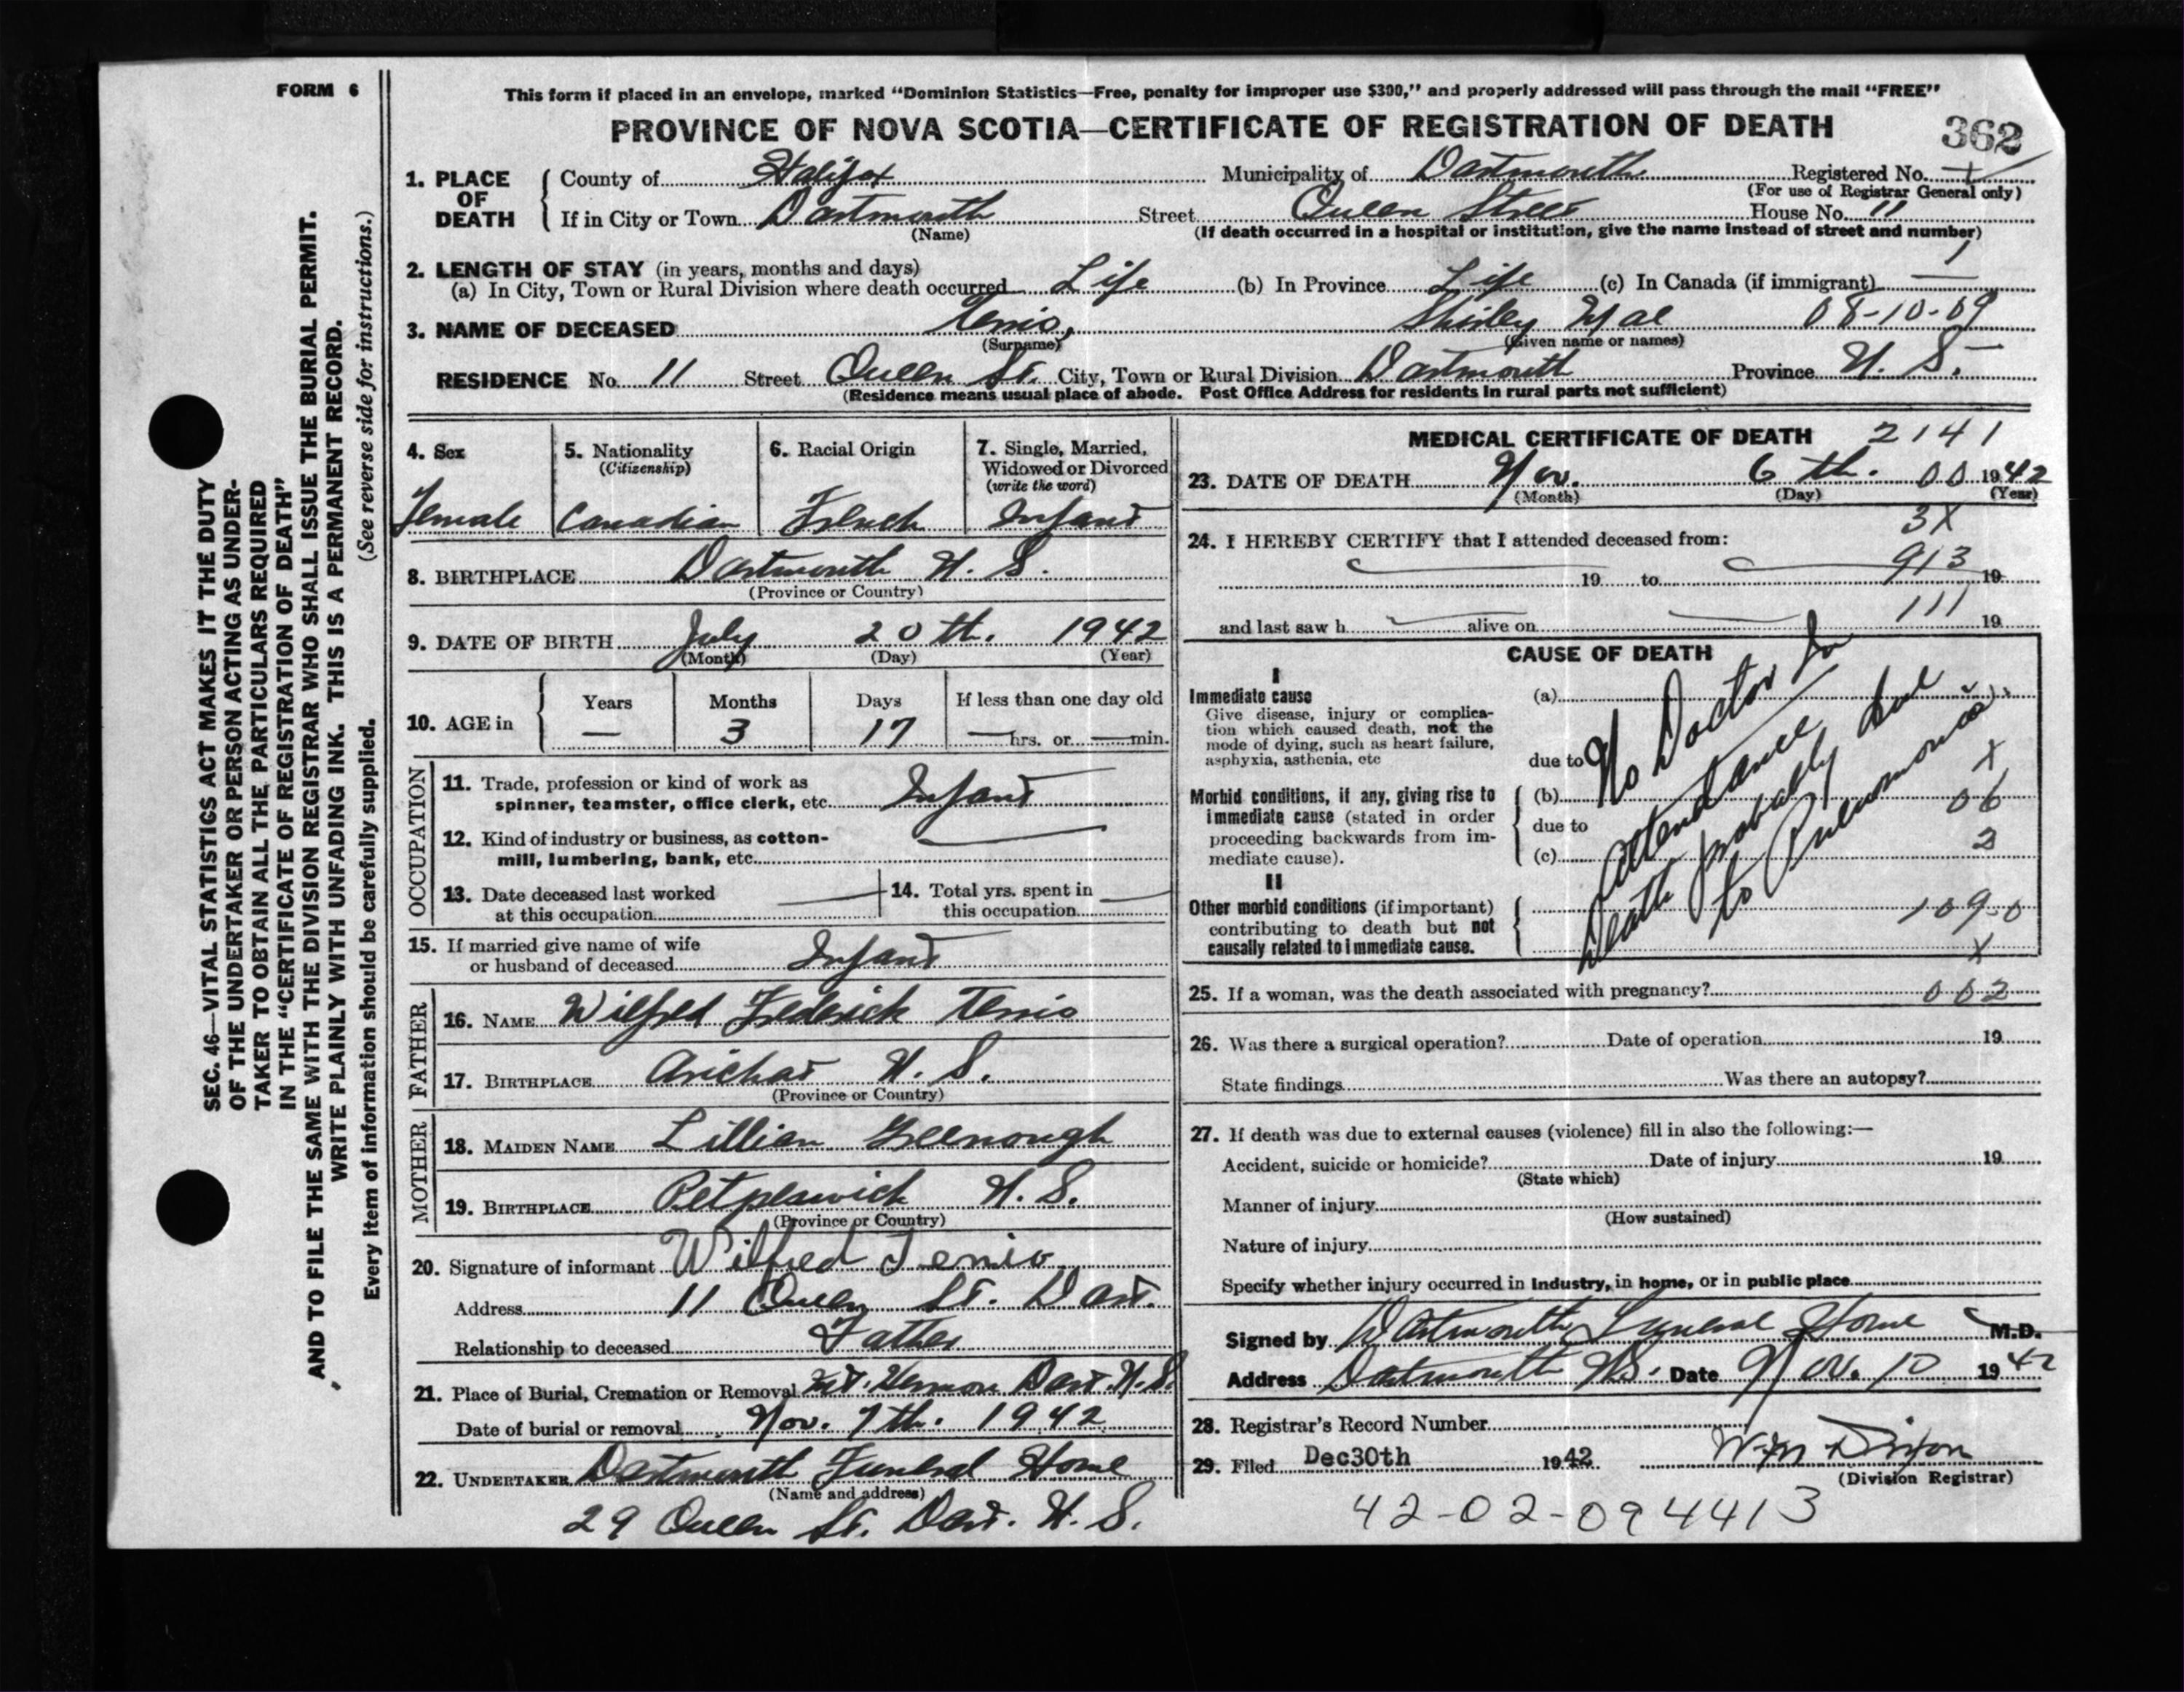 FORM 6
This form if placed in an envelope, marked "Dominion Statistics—Free, penalty for improper use $300," and properly addressed will pass through the mail "FREE"
PROVINCE OF NOVA SCOTIA—CERTIFICATE OF REGISTRATION OF DEATH
362
1. PLACE OF DEATH
County of Halifax Municipality of Dartmouth Registered No.
(For use of Registrar General only)
If in City or Town Dartmouth Street Queen Street House No. 11
(Name) (If death occurred in a hospital or institution, give the name instead of street and number)
2. LENGTH OF STAY (in years, months and days)
(a) In City, Town or Rural Division where death occurred Life (b) In Province Life (c) In Canada (if immigrant)
3. NAME OF DECEASED Tenio, Shirley Mae 08-10-09
(Surname) (Given name or names)
RESIDENCE No. 11 Street Queen St. City, Town or Rural Division Dartmouth Province N. S.
(Residence means usual place of abode. Post Office Address for residents in rural parts not sufficient)
4. Sex
Female
5. Nationality
(Citizenship)
Canadian
6. Racial Origin
French
7. Single, Married,
Widowed or Divorced
(write the word)
Infant
8. BIRTHPLACE Dartmouth N. S.
(Province or Country)
9. DATE OF BIRTH July 20th. 1942
(Month) (Day) (Year)
10. AGE in
Years Months Days If less than one day old
— 3 17 — hrs. or — min.
OCCUPATION
11. Trade, profession or kind of work as
spinner, teamster, office clerk, etc. Infant
12. Kind of industry or business, as cotton-
mill, lumbering, bank, etc.
13. Date deceased last worked
at this occupation
14. Total yrs. spent in
this occupation
15. If married give name of wife
or husband of deceased Infant
FATHER
16. NAME Wilfred Frederick Tenio
17. BIRTHPLACE Arichat N. S.
(Province or Country)
MOTHER
18. MAIDEN NAME Lillian Greenough
19. BIRTHPLACE Petpeswick N. S.
(Province or Country)
20. Signature of informant Wilfred Tenio
Address 11 Queen St. Dart.
Relationship to deceased Father
21. Place of Burial, Cremation or Removal Mt. Hermon Dart. N. S.
Date of burial or removal Nov. 7th. 1942
22. UNDERTAKER Dartmouth Funeral Home
(Name and address)
29 Queen St. Dart. N. S.
MEDICAL CERTIFICATE OF DEATH 2141
23. DATE OF DEATH Nov. 6th. 00 1942
(Month) (Day) (Year)
3X
24. I HEREBY CERTIFY that I attended deceased from:
19 to 913 19
and last saw h alive on 111 19
CAUSE OF DEATH
I
Immediate cause
Give disease, injury or complica-
tion which caused death, not the
mode of dying, such as heart failure,
asphyxia, asthenia, etc
(a)
due to
Morbid conditions, if any, giving rise to
immediate cause (stated in order
proceeding backwards from im-
mediate cause).
(b)
due to
(c)
II
Other morbid conditions (if important)
contributing to death but not
causally related to immediate cause.
No Doctor In
Attendance
Death probably due
to Pneumonia
X
06
2
109-0
X
25. If a woman, was the death associated with pregnancy? 002
26. Was there a surgical operation? Date of operation 19
State findings Was there an autopsy?
27. If death was due to external causes (violence) fill in also the following:—
Accident, suicide or homicide? Date of injury 19
(State which)
Manner of injury
(How sustained)
Nature of injury
Specify whether injury occurred in industry, in home, or in public place
Signed by Dartmouth Funeral Home M.D.
Address Dartmouth N.S. Date Nov. 10 1942
28. Registrar's Record Number
29. Filed Dec30th 1942 W.M Dixon
(Division Registrar)
42-02-094413
SEC. 46—VITAL STATISTICS ACT MAKES IT THE DUTY
OF THE UNDERTAKER OR PERSON ACTING AS UNDER-
TAKER TO OBTAIN ALL THE PARTICULARS REQUIRED
IN THE "CERTIFICATE OF REGISTRATION OF DEATH"
AND TO FILE THE SAME WITH THE DIVISION REGISTRAR WHO SHALL ISSUE THE BURIAL PERMIT.
WRITE PLAINLY WITH UNFADING INK. THIS IS A PERMANENT RECORD.
(See reverse side for instructions.)
Every item of information should be carefully supplied.